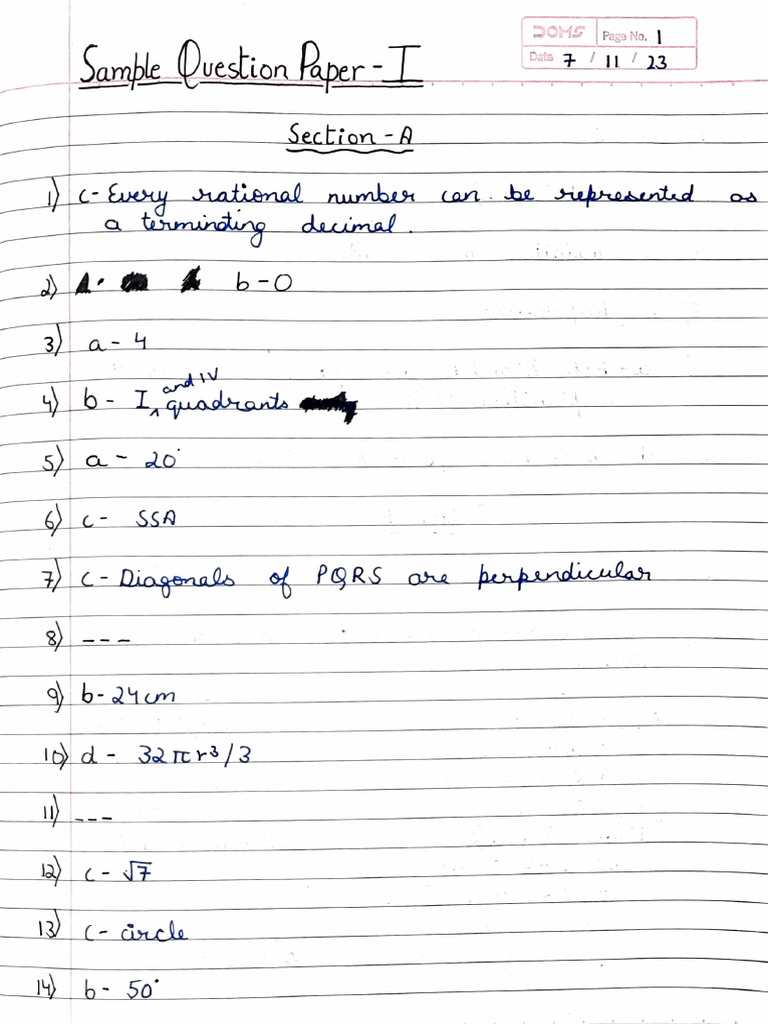 DOMS Page No. 1
Date 7 / 11 / 23
Sample Question Paper - I
Section - A
1) c - Every rational number can be represented as
a terminating decimal.
2) b - 0
3) a - 4
4) b - I and IV quadrants
5) a - 20°
6) c - SSA
7) c - Diagonals of PQRS are perpendicular
8) ---
9) b - 24 cm
10) d - 32πr³/3
11) ---
12) c - √7
13) c - circle
14) b - 50°